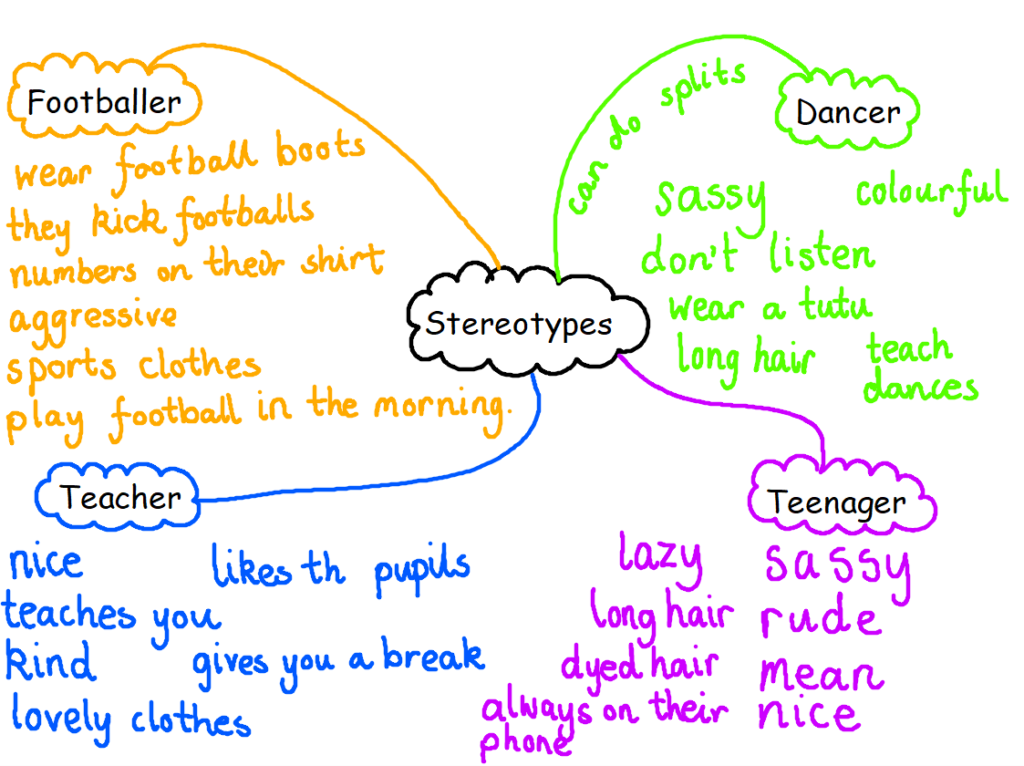 Stereotypes
Footballer
wear football boots
they kick footballs
numbers on their shirt
aggressive
sports clothes
play football in the morning.
Dancer
can do splits
sassy
colourful
don't listen
wear a tutu
long hair
teach
dances
Teacher
nice
likes th pupils
teaches you
kind
gives you a break
lovely clothes
Teenager
lazy
sassy
long hair
rude
dyed hair
mean
always on their
phone
nice